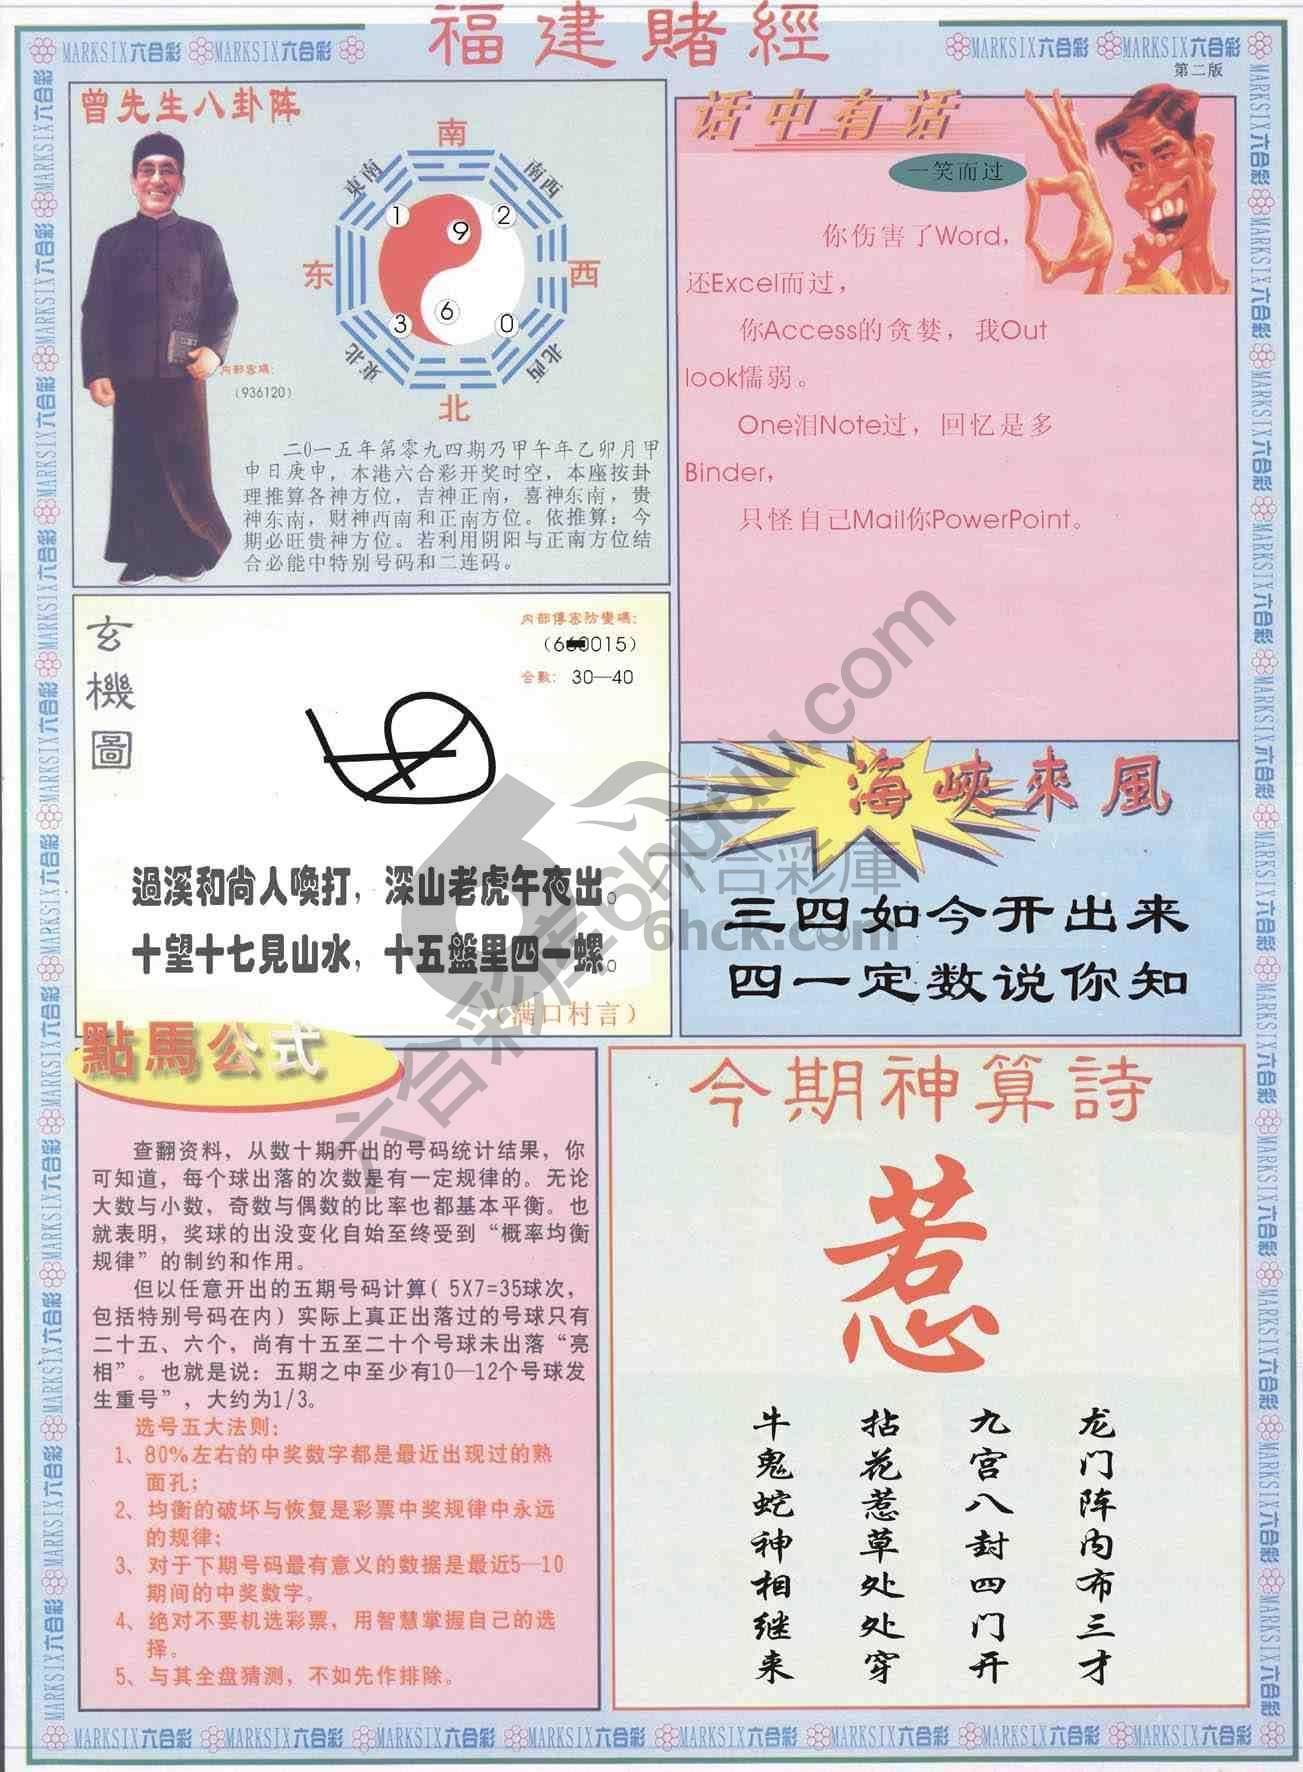 福建賭經
MARKSIX六合彩 MARKSIX六合彩
MARKSIX六合彩 MARKSIX六合彩
第二版
曾先生八卦阵
南
東南
南西
1
9
2
东
西
3
6
0
東北
北西
北
内部密碼：
（936120）
二0一五年第零九四期乃甲午年乙卯月甲
申日庚申，本港六合彩开奖时空，本座按卦
理推算各神方位，吉神正南，喜神东南，贵
神东南，财神西南和正南方位。依推算：今
期必旺贵神方位。若利用阴阳与正南方位结
合必能中特别号码和二连码。
话中有话
一笑而过
你伤害了Word，
还Excel而过，
你Access的贪婪，我Out
look懦弱。
One泪Note过，回忆是多
Binder，
只怪自己Mail你PowerPoint。
玄機圖
内部傳密防變碼：
合數：30—40
過溪和尚人喚打，深山老虎午夜出。
十望十七見山水，十五盤里四一螺。
（满口村言）
海峽來風
三四如今开出来
四一定数说你知
點馬公式
查翻资料，从数十期开出的号码统计结果，你
可知道，每个球出落的次数是有一定规律的。无论
大数与小数，奇数与偶数的比率也都基本平衡。也
就表明，奖球的出没变化自始至终受到“概率均衡
规律”的制约和作用。
但以任意开出的五期号码计算（5X7=35球次，
包括特别号码在内）实际上真正出落过的号球只有
二十五、六个，尚有十五至二十个号球未出落“亮
相”。也就是说：五期之中至少有10—12个号球发
生重号”，大约为1/3。
选号五大法则：
1、80%左右的中奖数字都是最近出现过的熟
面孔；
2、均衡的破坏与恢复是彩票中奖规律中永远
的规律；
3、对于下期号码最有意义的数据是最近5—10
期间的中奖数字。
4、绝对不要机选彩票，用智慧掌握自己的选
择。
5、与其全盘猜测，不如先作排除。
今期神算詩
惹
龙门阵内布三才
九宫八封四门开
拈花惹草处处穿
牛鬼蛇神相继来
MARKSIX六合彩 MARKSIX六合彩 MARKSIX六合彩 MARKSIX六合彩 MARKSIX六合彩 MARKSIX六合彩 MARKSIX六合彩 MARKSIX六合彩
六合彩库6huuu.com
六合彩庫
6hck.com